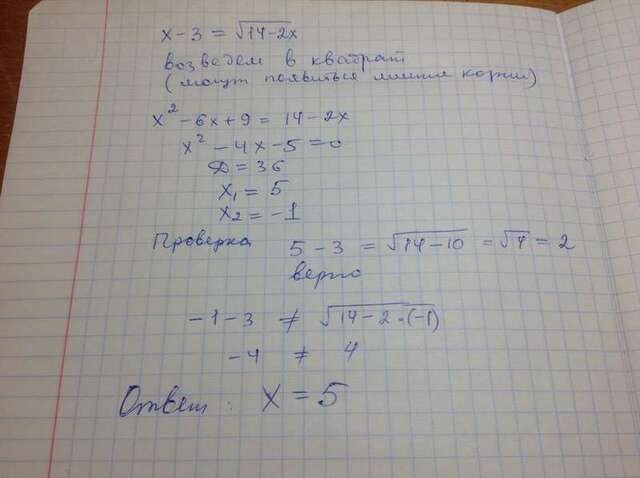 x - 3 = √(14-2x)
возведем в квадрат
(могут появиться лишние корни)
x² - 6x + 9 = 14 - 2x
x² - 4x - 5 = 0
D = 36
x₁ = 5
x₂ = -1
Проверка 5 - 3 = √(14-10) = √4 = 2
верно
-1 - 3 ≠ √(14-2·(-1))
-4 ≠ 4
Ответ: x = 5